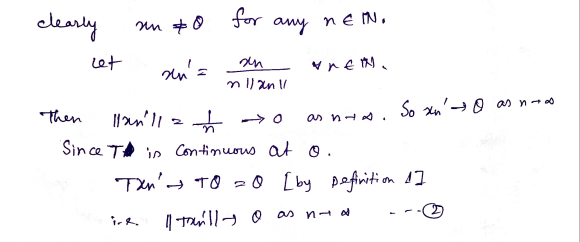 clearly xn ≠ θ for any n ∈ ℕ.
Let xn' = xn / n||xn|| ∀ n ∈ ℕ.
Then ||xn'|| = 1/n → 0 as n→∞. So xn' → θ as n→∞
Since T is continuous at θ.
Txn' → Tθ = θ [by Definition 1]
i.e. ||Txn'|| → 0 as n→∞ ---②